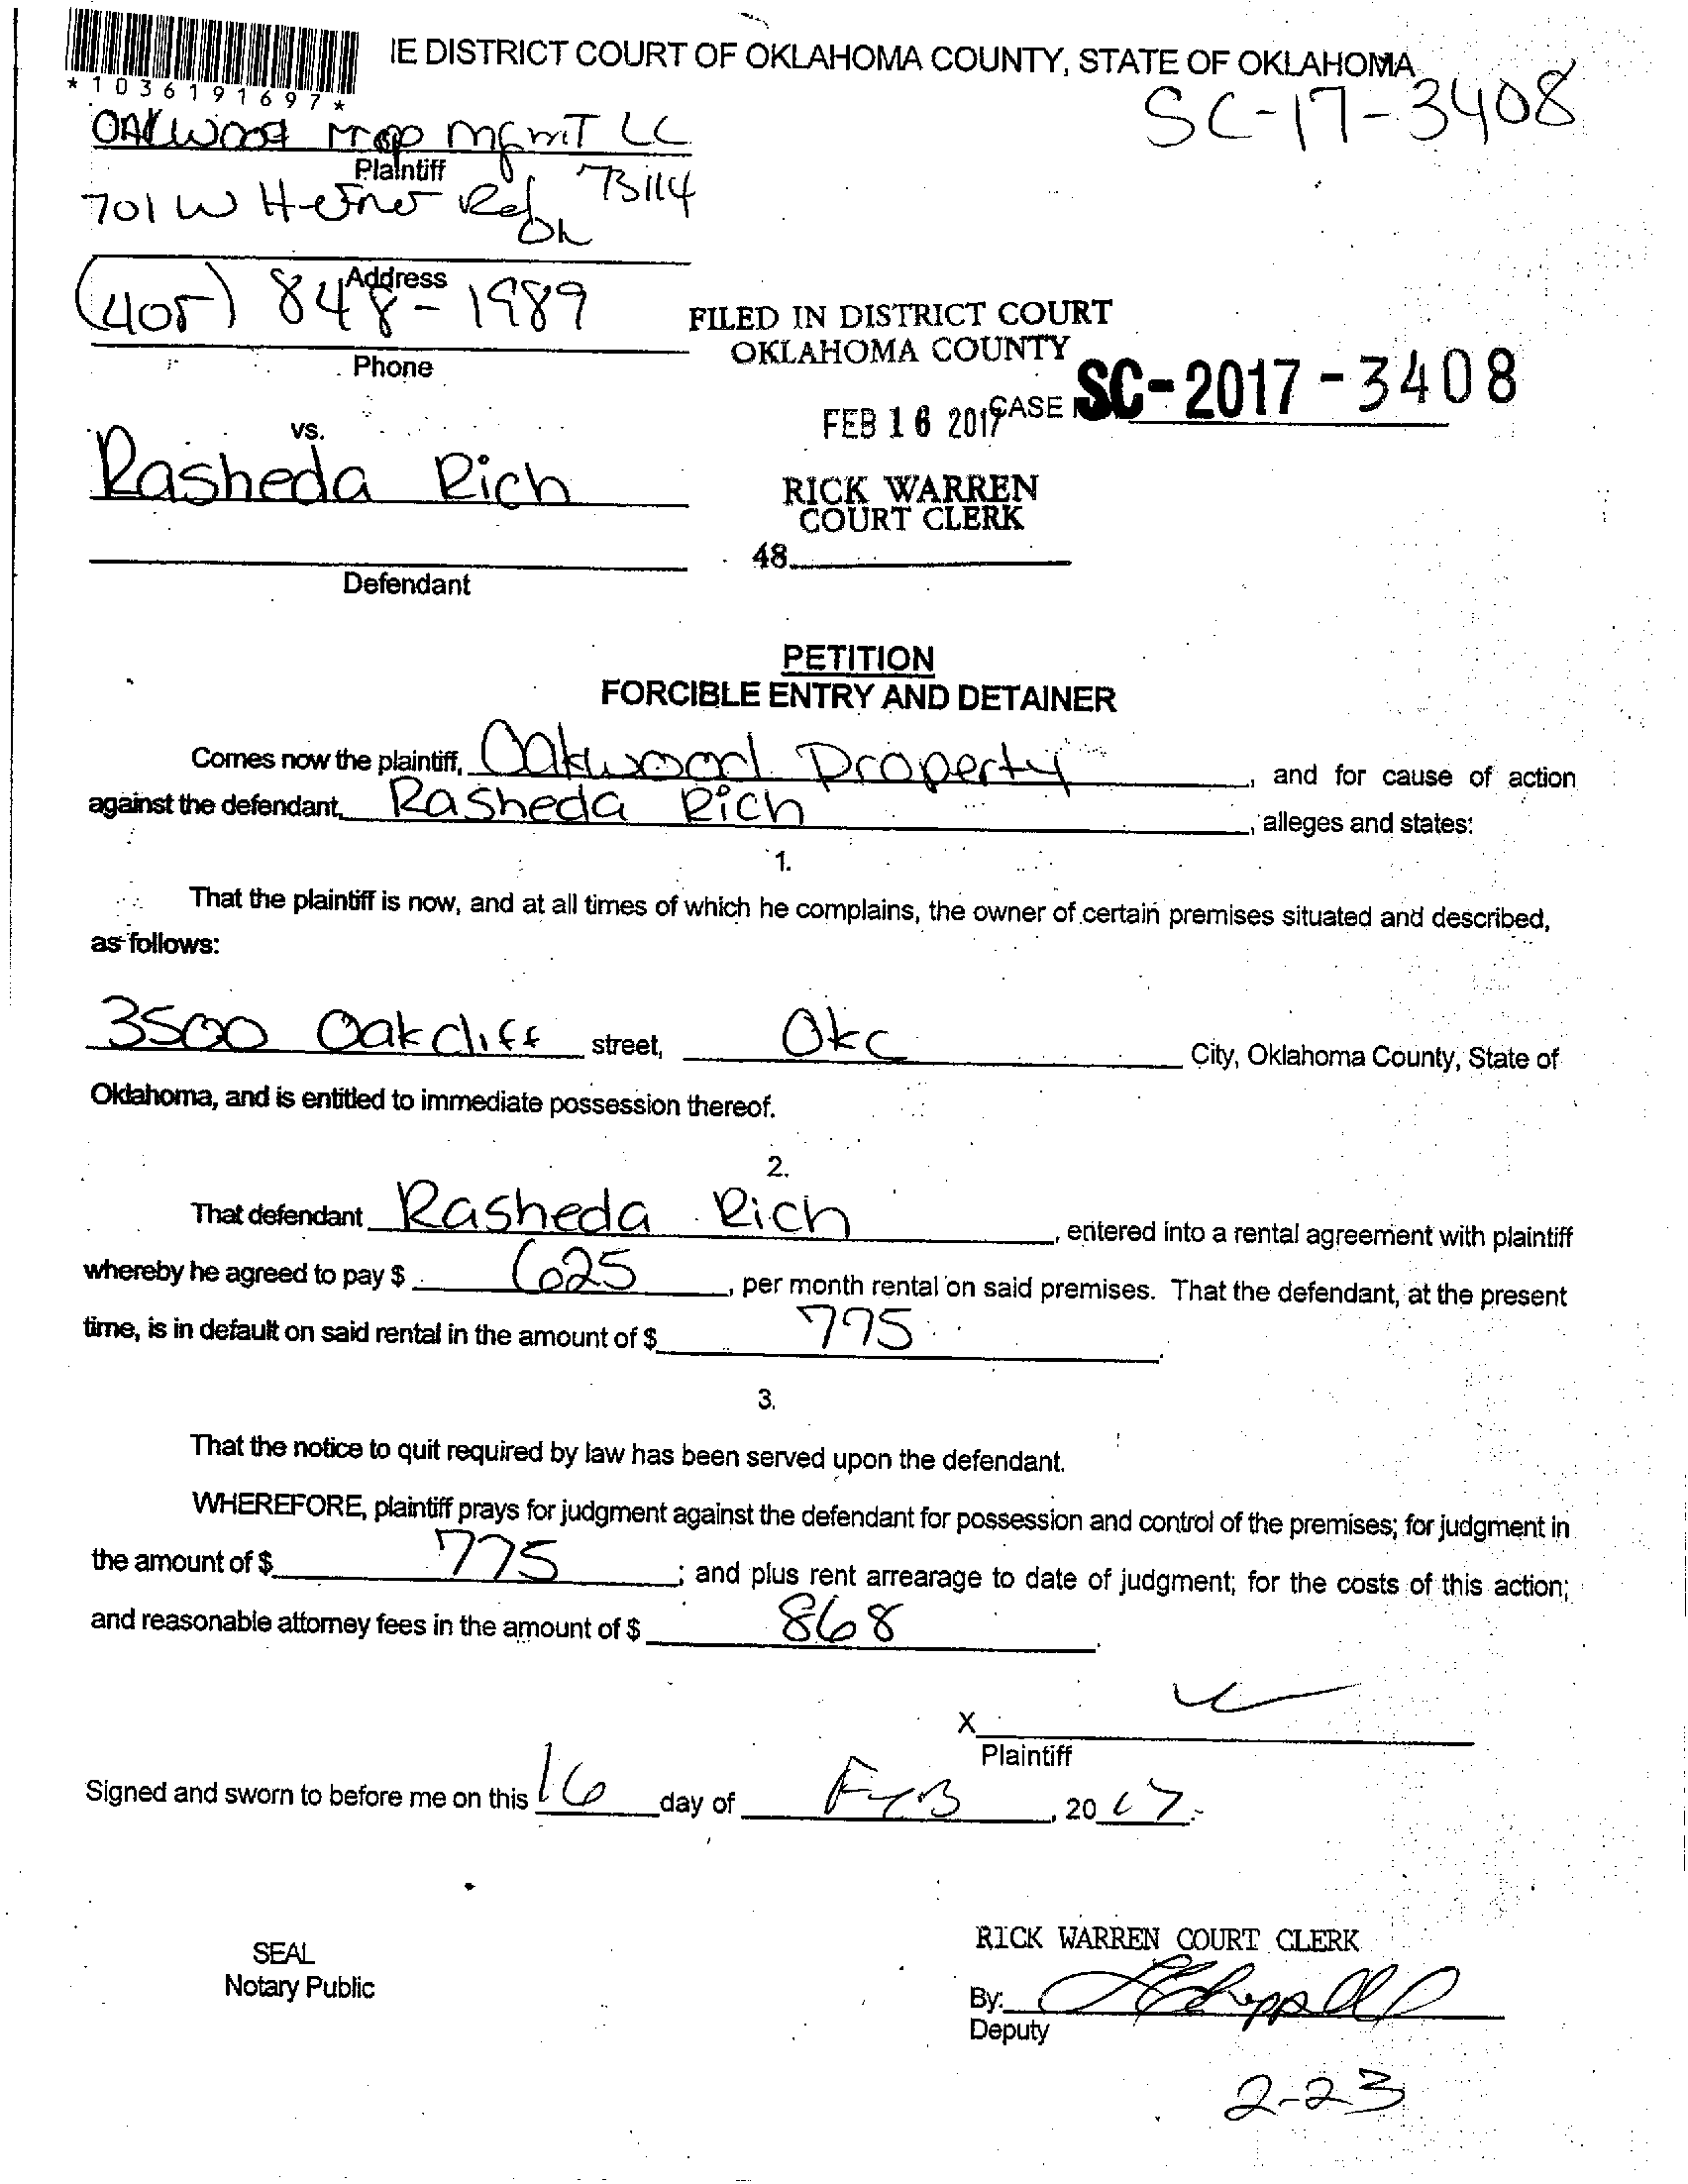 IE DISTRICT COURT OF OKLAHOMA COUNTY, STATE OF OKLAHOMA
*1036191697*
SC-17-3408
OAKWOOD Prop MGMT LC
Plaintiff
701 W Hefner Rd 73114
OK
Address
(405) 848-1989
Phone
FILED IN DISTRICT COURT
OKLAHOMA COUNTY
CASE SC-2017-3408
FEB 16 2017
vs.
Rasheda Rich
RICK WARREN
COURT CLERK
48
Defendant
PETITION
FORCIBLE ENTRY AND DETAINER
Comes now the plaintiff, Oakwood Property, and for cause of action
against the defendant, Rasheda Rich, alleges and states:
1.
That the plaintiff is now, and at all times of which he complains, the owner of certain premises situated and described,
as follows:
3500 Oakcliff street, OKC City, Oklahoma County, State of
Oklahoma, and is entitled to immediate possession thereof.
2.
That defendant Rasheda Rich, entered into a rental agreement with plaintiff
whereby he agreed to pay $ 625, per month rental on said premises. That the defendant, at the present
time, is in default on said rental in the amount of $ 775.
3.
That the notice to quit required by law has been served upon the defendant.
WHEREFORE, plaintiff prays for judgment against the defendant for possession and control of the premises; for judgment in
the amount of $ 775; and plus rent arrearage to date of judgment; for the costs of this action;
and reasonable attorney fees in the amount of $ 868.
X
Plaintiff
Signed and sworn to before me on this 16 day of FEB, 2017.
SEAL
Notary Public
RICK WARREN COURT CLERK
By:
Deputy
2-23